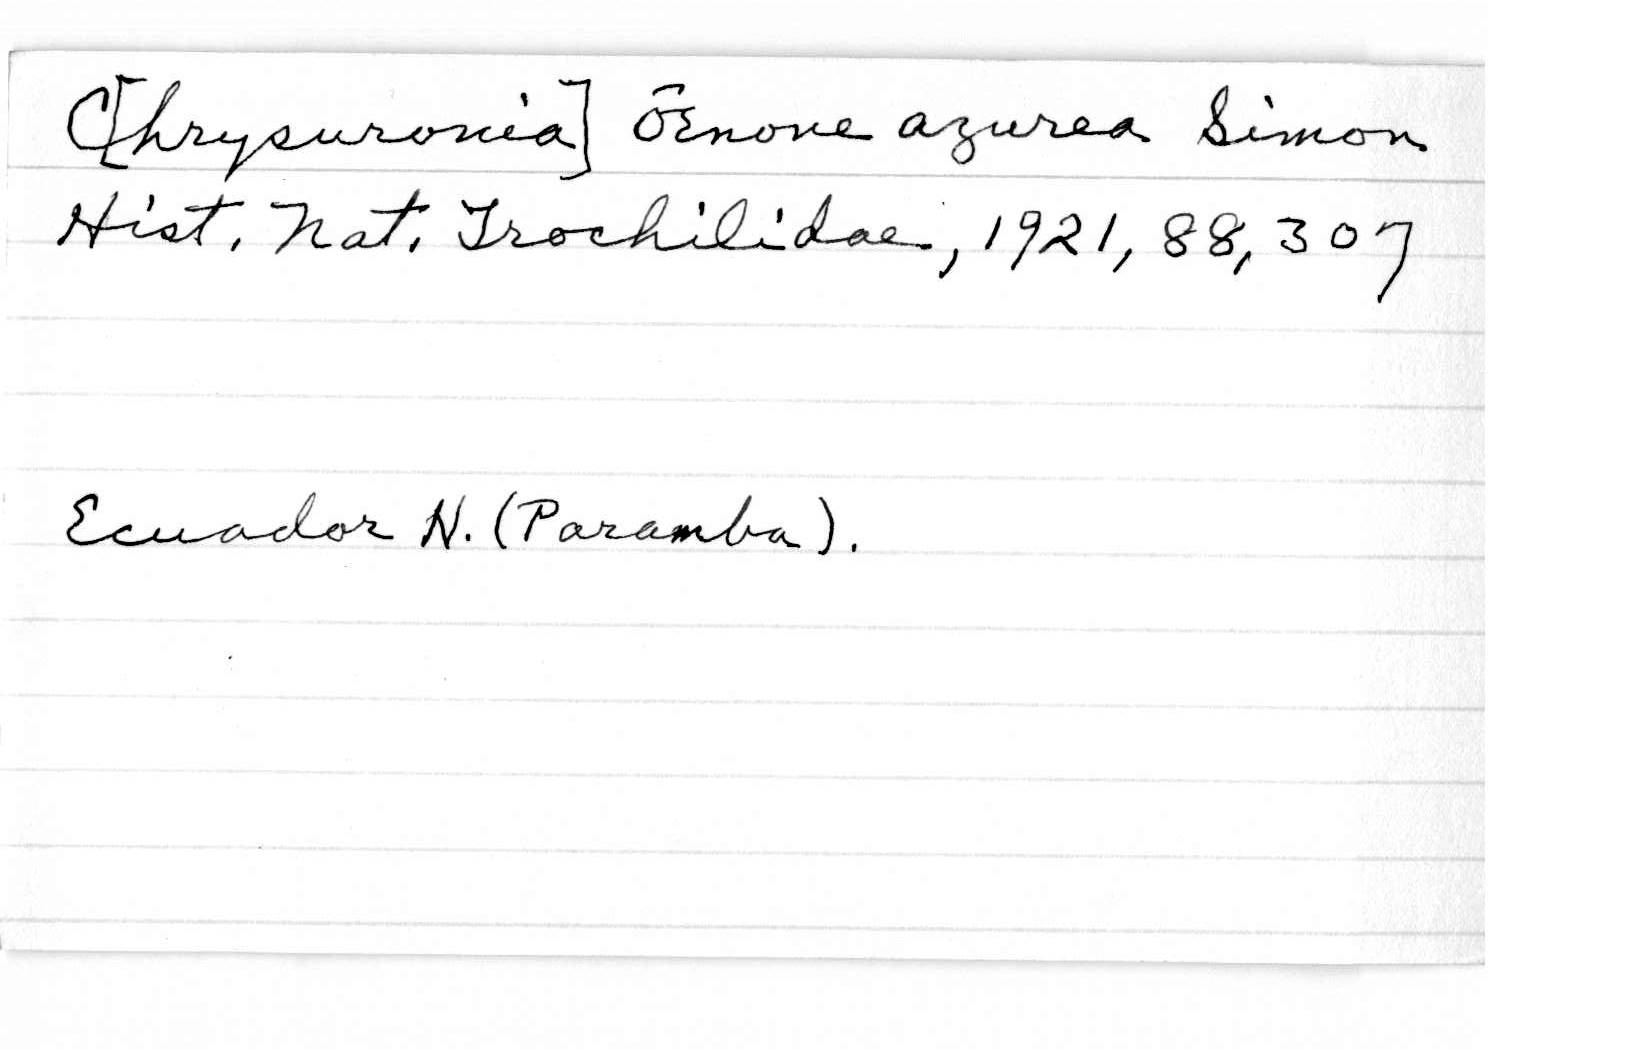 C[hrysuronia] Œnone azurea Simon
Hist. Nat. Trochilidae, 1921, 88, 307
Ecuador N. (Paramba).